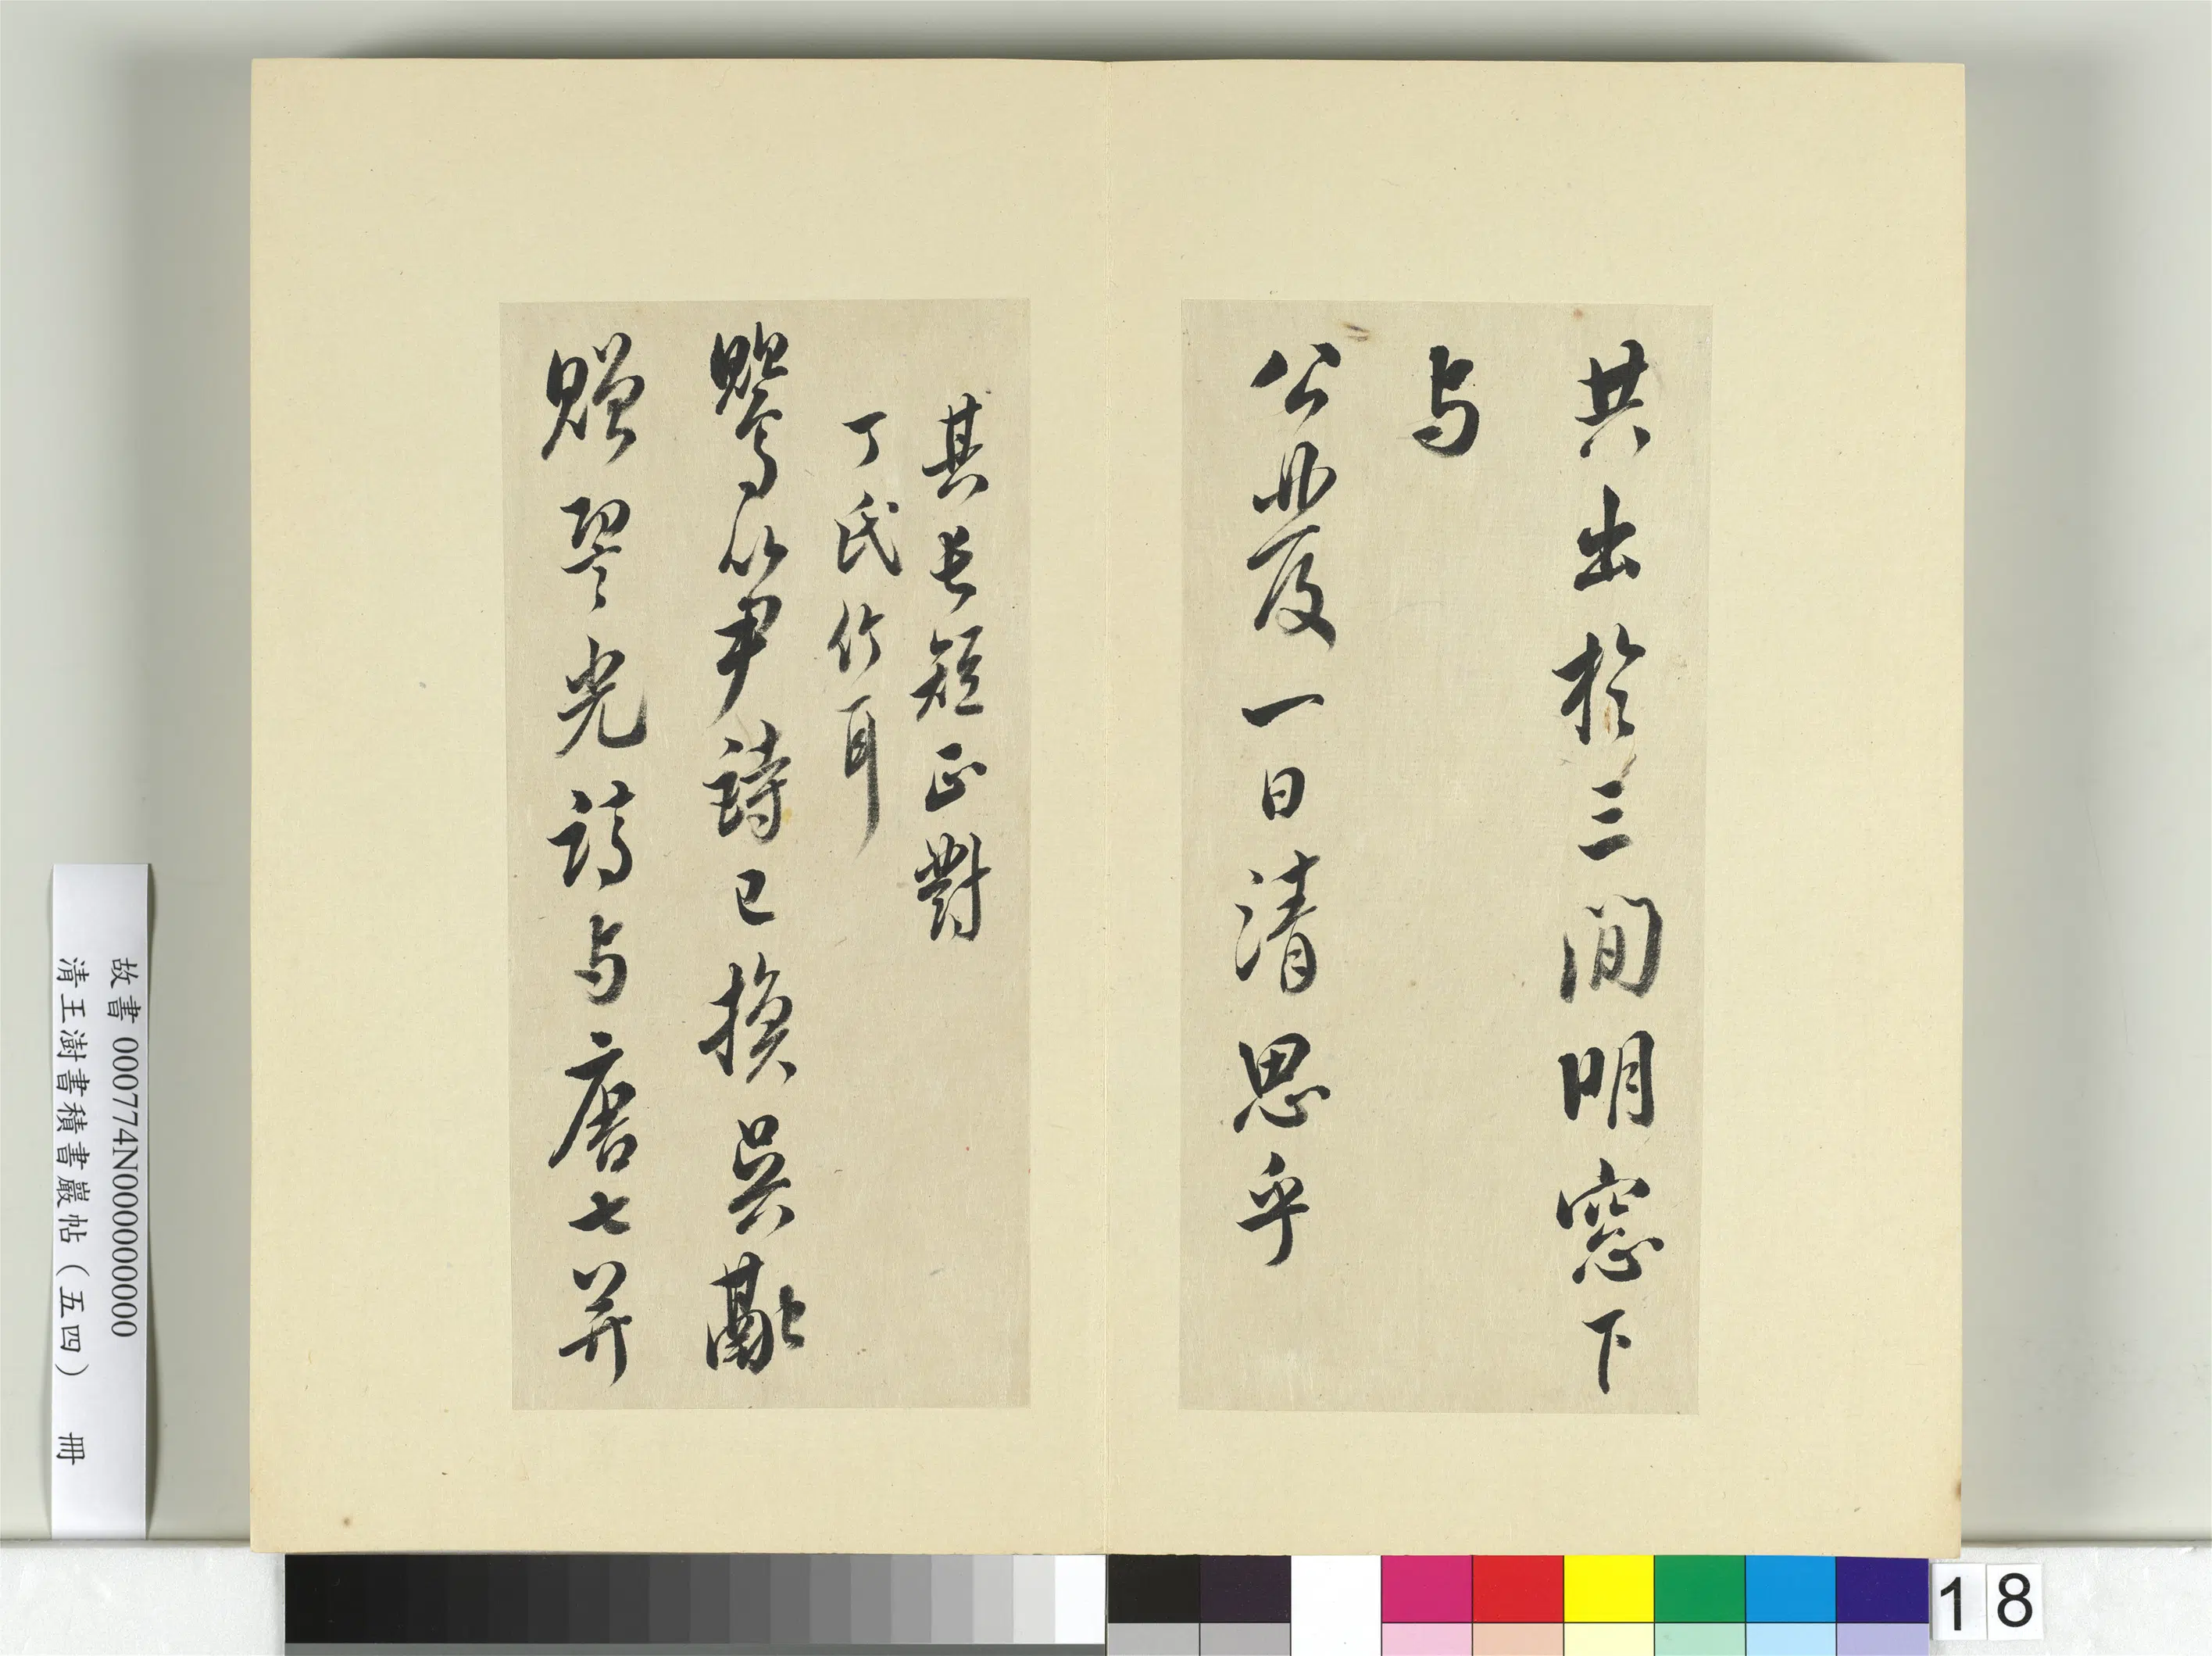 共出於三間明窓下
与
公業度一日清思乎
其長短正對
丁氏作耳
鸎以尹詩已換吳
贈翠光詩与唐七并
故書 000774N000000000
清王澍書積書巖帖（五四） 冊
18